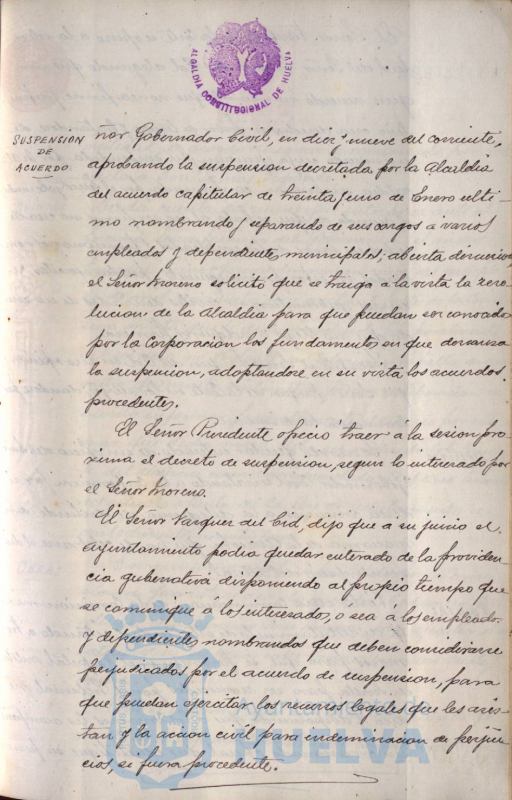 ALCALDÍA CONSTITUCIONAL DE HUELVA
SUSPENSION
DE
ACUERDO
ñor Gobernador Civil, en diez y nueve del corriente,
aprobando la suspension decretada por la Alcaldia
del acuerdo capitular de treinta y uno de Enero ulti-
mo nombrando y separando de sus cargos á varios
empleados y dependientes municipales; abierta discusion,
el Señor Moreno solicitó que se traiga á la vista la reso-
lucion de la Alcaldia para que puedan ser conocidos
por la Corporacion los fundamentos en que descansa
la suspension, adoptandose en su vista los acuerdos
procedentes.
El Señor Presidente ofreció traer á la sesion pro-
xima el decreto de suspension, segun lo interesado por
el Señor Moreno.
El Señor Vazquez del Cid, dijo que a su juicio el
Ayuntamiento podia quedar enterado de la providen-
cia gubernativa disponiendo al propio tiempo que
se comunique á los interesados, ó sea á los empleados
y dependientes nombrandos que deben considerarse
perjudicados por el acuerdo de suspension, para
que puedan ejercitar los recursos legales que les asis-
tan y la accion civil para indemnizacion de perjui-
cios, si fuera procedente.
HUELVA